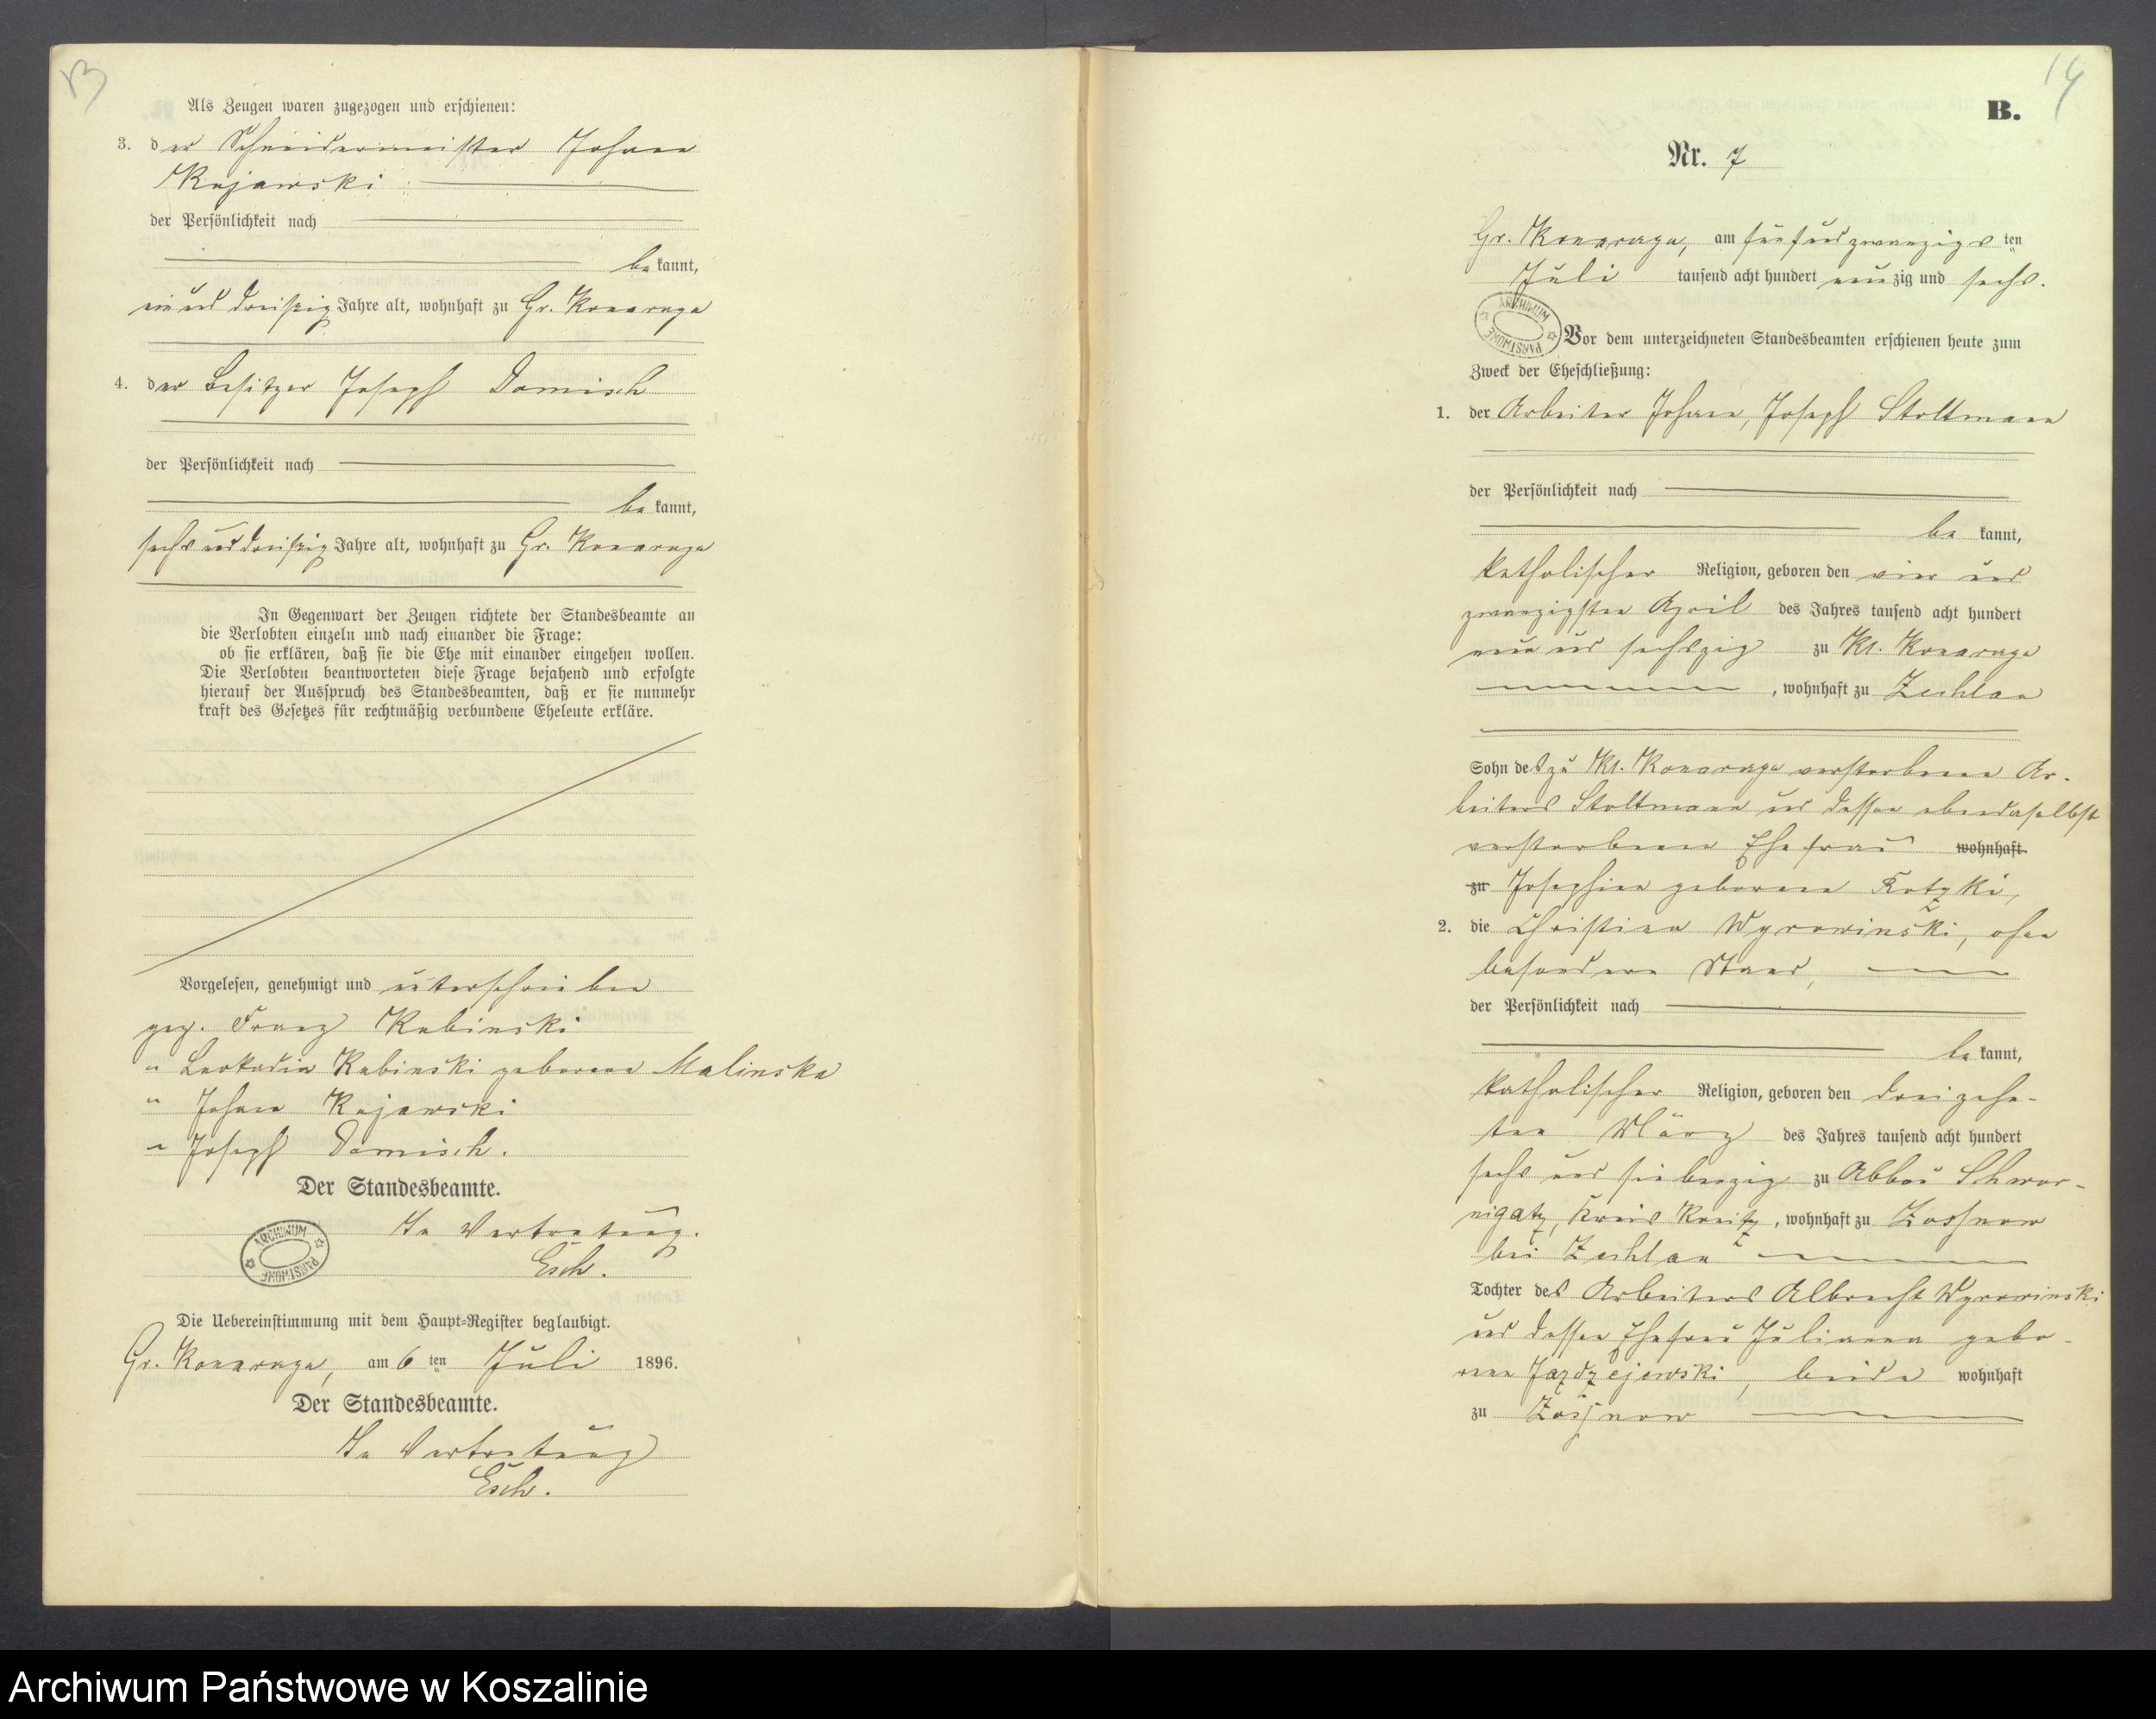 13
Als Zeugen waren zugezogen und erschienen:
3. der Schneidermeister Johann
Kujawski
der Persönlichkeit nach
bekannt,
einunddreißig Jahre alt, wohnhaft zu Gr. Konarzyn
4. der Besitzer Joseph Domisch
der Persönlichkeit nach
bekannt,
sechsunddreißig Jahre alt, wohnhaft zu Gr. Konarzyn
In Gegenwart der Zeugen richtete der Standesbeamte an
die Verlobten einzeln und nach einander die Frage:
ob sie erklären, daß sie die Ehe mit einander eingehen wollen.
Die Verlobten beantworteten diese Frage bejahend und erfolgte
hierauf der Ausspruch des Standesbeamten, daß er sie nunmehr
kraft des Gesetzes für rechtmäßig verbundene Eheleute erkläre.
Vorgelesen, genehmigt und unterschrieben
gez. Franz Kubinski
" Leokadia Kubinski geborene Malinska
" Johann Kujawski
" Joseph Domisch.
Der Standesbeamte.
In Vertretung.
Esch.
ARCHIWUM PAŃSTWOWE
Die Uebereinstimmung mit dem Haupt-Register beglaubigt.
Gr. Konarzyn, am 6ten Juli 1896.
Der Standesbeamte.
In Vertretung
Esch.
14
B.
Nr. 7
Gr. Konarzyn, am fünfundzwanzigsten
Juli tausend acht hundert neunzig und sechs.
ARCHIWUM PAŃSTWOWE
Vor dem unterzeichneten Standesbeamten erschienen heute zum
Zweck der Eheschließung:
1. der Arbeiter Johann, Joseph Stoltmann
der Persönlichkeit nach
bekannt,
katholischer Religion, geboren den vier und
zwanzigsten April des Jahres tausend acht hundert
neun und sechszig zu Kl. Konarzyn
, wohnhaft zu Zechlau
Sohn des zu Kl. Konarzyn verstorbenen Ar-
beiters Stoltmann und dessen ebendaselbst
verstorbenen Ehefrau wohnhaft
zu Josephine geborene
2. die Christina Wyrowinski, ohne
besonderen Stand,
der Persönlichkeit nach
bekannt,
katholischer Religion, geboren den dreizehn-
ten März des Jahres tausend acht hundert
sechs und siebenzig zu Abbau Schwor-
nigatz, Kreis Konitz, wohnhaft zu Zossnow
bei Zechlau
Tochter des Arbeiters Albrecht Wyrowinski
und dessen Ehefrau Julianna gebo-
rene Jazdzejewski, beide wohnhaft
zu Zossnow
Archiwum Państwowe w Koszalinie